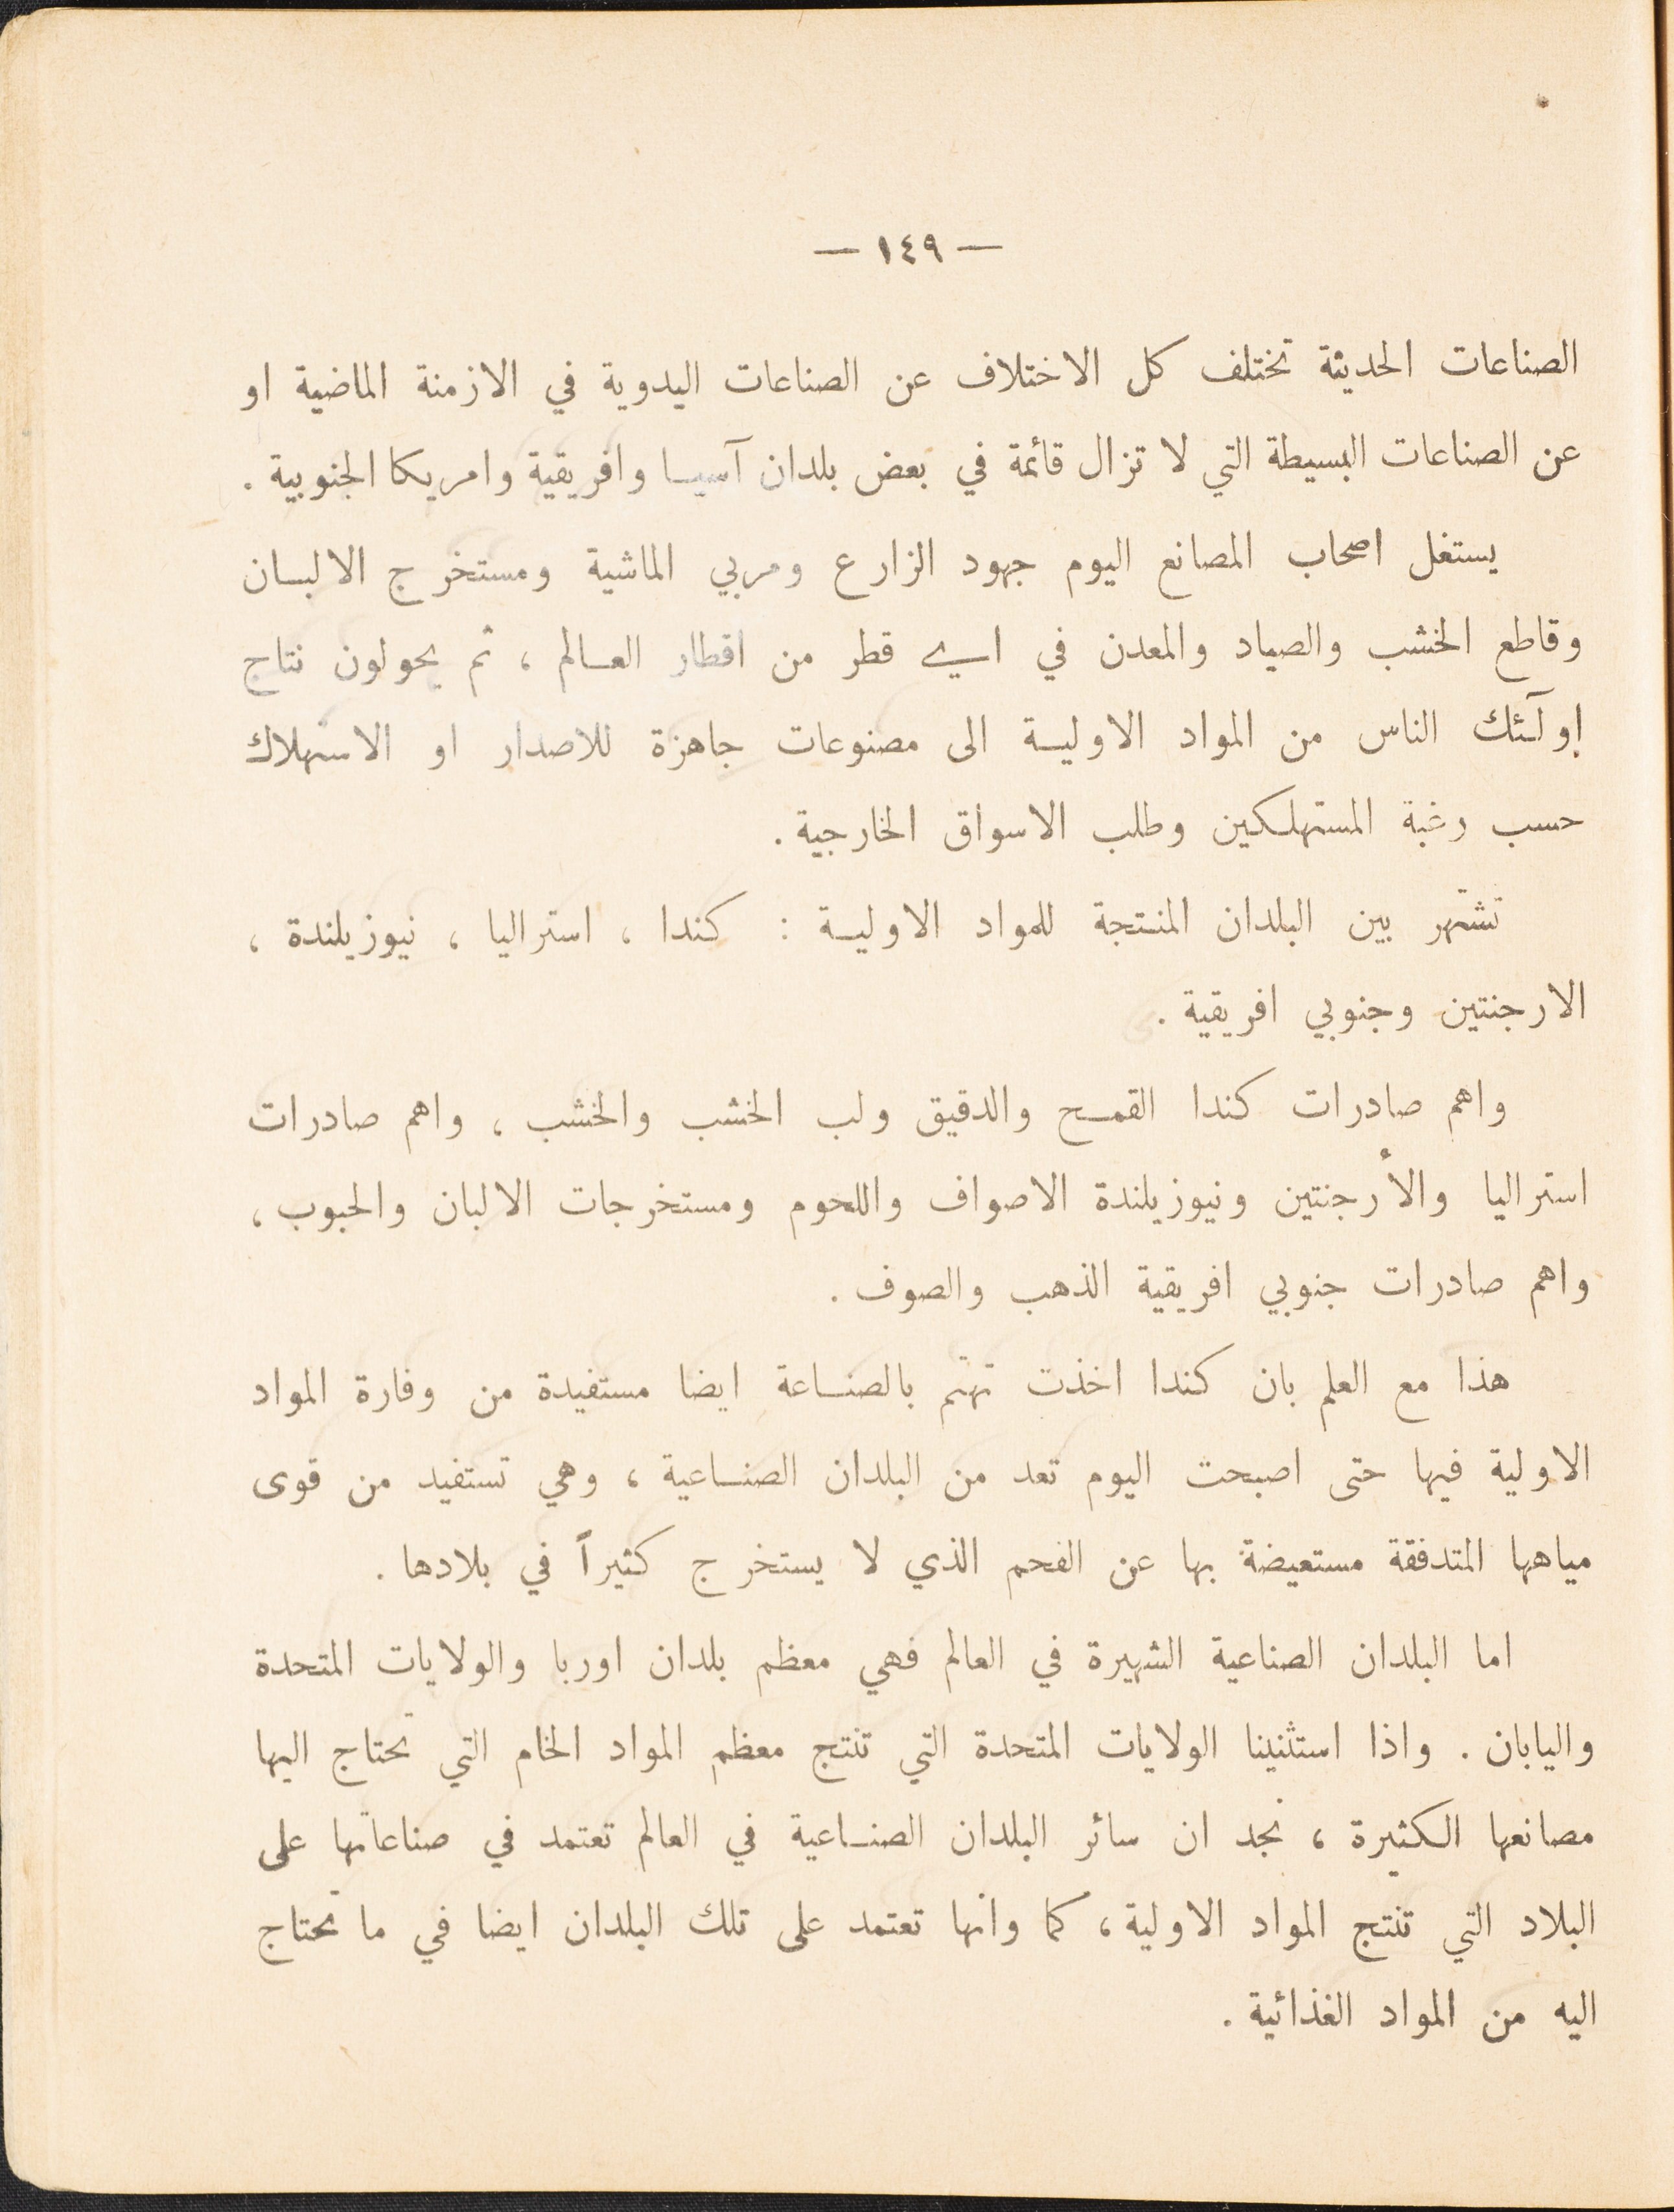 — ١٤٩ —
الصناعات الحديثة تختلف كل الاختلاف عن الصناعات اليدوية في الازمنة الماضية او
عن الصناعات البسيطة التي لا تزال قائمة في بعض بلدان آسيا وافريقية وامريكا الجنوبية .
يستغل اصحاب المصانع اليوم جهود الزارع ومربي الماشية ومستخرج الالبان
وقاطع الخشب والصياد والمعدن في اي قطر من اقطار العالم ، ثم يحولون نتاج
اولئك الناس من المواد الاولية الى مصنوعات جاهزة للاصدار او الاستهلاك
حسب رغبة المستهلكين وطلب الاسواق الخارجية .
تشتهر بين البلدان المنتجة للمواد الاولية : كندا ، استراليا ، نيوزيلندة ،
الارجنتين وجنوبي افريقية .
واهم صادرات كندا القمح والدقيق ولب الخشب والخشب ، واهم صادرات
استراليا والأرجنتين ونيوزيلندة الاصواف واللحوم ومستخرجات الالبان والحبوب ،
واهم صادرات جنوبي افريقية الذهب والصوف .
هذا مع العلم بان كندا اخذت تهتم بالصناعة ايضا مستفيدة من وفارة المواد
الاولية فيها حتى اصبحت اليوم تعد من البلدان الصناعية ، وهي تستفيد من قوى
مياهها المتدفقة مستعيضة بها عن الفحم الذي لا يستخرج كثيراً في بلادها .
اما البلدان الصناعية الشهيرة في العالم فهي معظم بلدان اوربا والولايات المتحدة
واليابان . واذا استثنينا الولايات المتحدة التي تنتج معظم المواد الخام التي تحتاج اليها
مصانعها الكثيرة ، نجد ان سائر البلدان الصناعية في العالم تعتمد في صناعاتها على
البلاد التي تنتج المواد الاولية ، كما وانها تعتمد على تلك البلدان ايضا في ما تحتاج
اليه من المواد الغذائية .